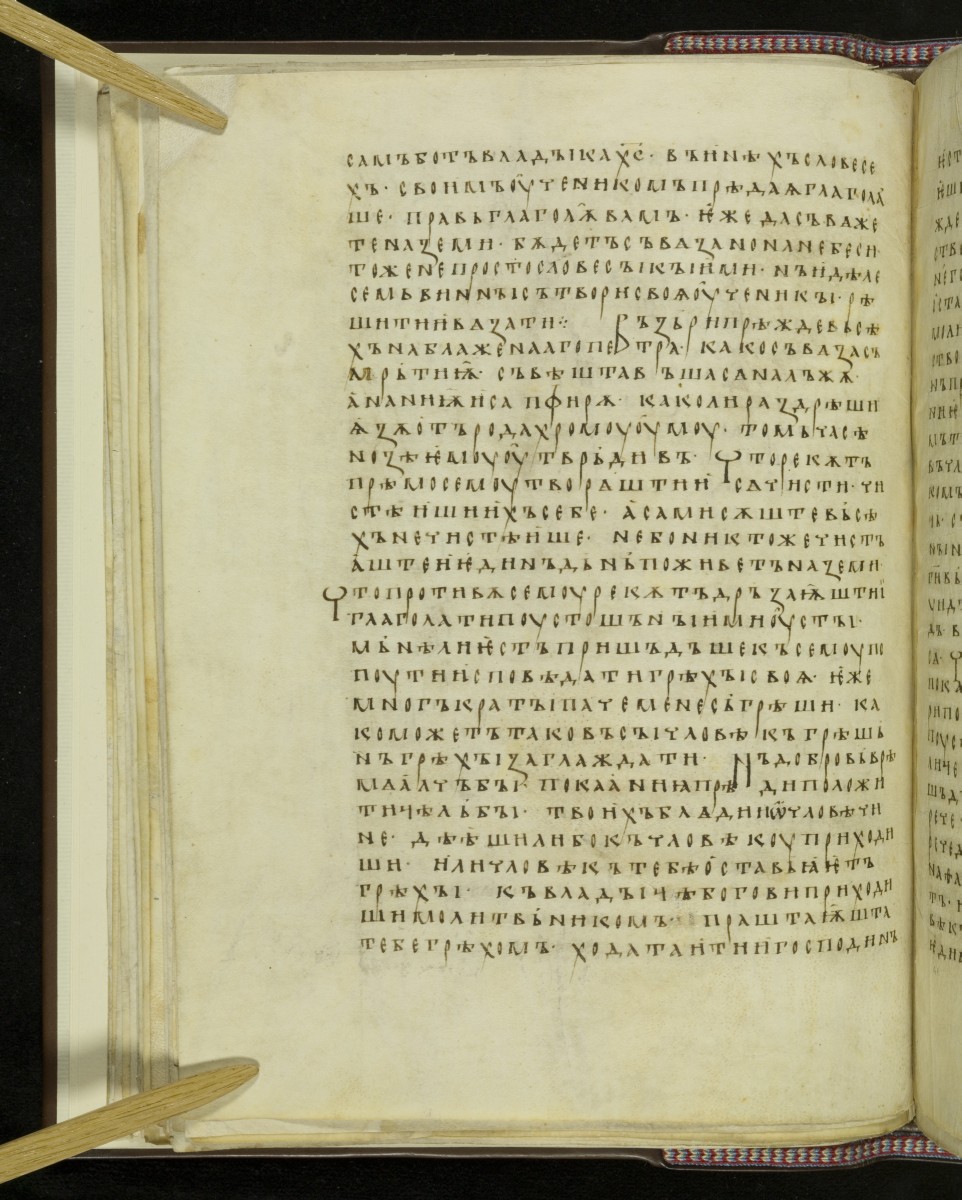 самъ ботъ владꙑка х҃с· въ инѣхъ словесе
хъ· своимъ оученикомъ прѣдаѩ глагола
ше· правь глаголѭ вамъ· ѥже да съважє
те на земи· бѫдетъ съвѧзано на небеси·
то же не простꙑ словесꙑ кꙑими· нъ и дѣле
семь винънꙑ сътвори своѩ оученикꙑ· рѣ
шити и вѧзати⁘ Възьри прѣжде вьсѣ
хъ на блаженааго петра· како съвѧза съ
мрьтиѭ· съвѣштавъша сѧ на лъжѫ·
ананиѭ и сапфирѫ· како ли раздрѣши
ѫзѫ отъ рода хромоуоумоу· томь часѣ
нозѣ ѥмоу оутврьдивъ· Что рекѫтъ
прѣмо семоу творѧштии сѧ чисти· чи
стѣишиихъ себе· а сами сѫште вьсѣ
хъ нечистѣише· небо никтоже чистъ
аште и ѥдинъ дьнь поживетъ на земи·
Что противѫ семоу рекѫтъ дръзаѭштиі
глаголати поустошънꙑими оустꙑ·
мьнѣ ли ѥстъ пришъдъше къ семоу по
поу ти исповѣдати грѣхꙑ своѩ· ѥже
многъкратꙑ паче мене съгрѣши· ка
ко можетъ таковъ сꙑ чловѣкъ грѣшь
нъ грѣхꙑ заглаждати· Нъ добро вьврѣ
маалчъ бꙑ· покаании прѣди положи
ти чѣльбꙑ· твоихъ блѧдии ѡ чловѣчи
не· дѣѣши ли бо къ чловѣкоу приходи
ши· или чловѣкъ тебѣ оставьꙗѥтъ
грѣхꙑ· къ владꙑчѣ богови приходи
ши молитвьникомъ· праштаѭшта
тебе грѣхомъ· ходатаи ти и господинъ